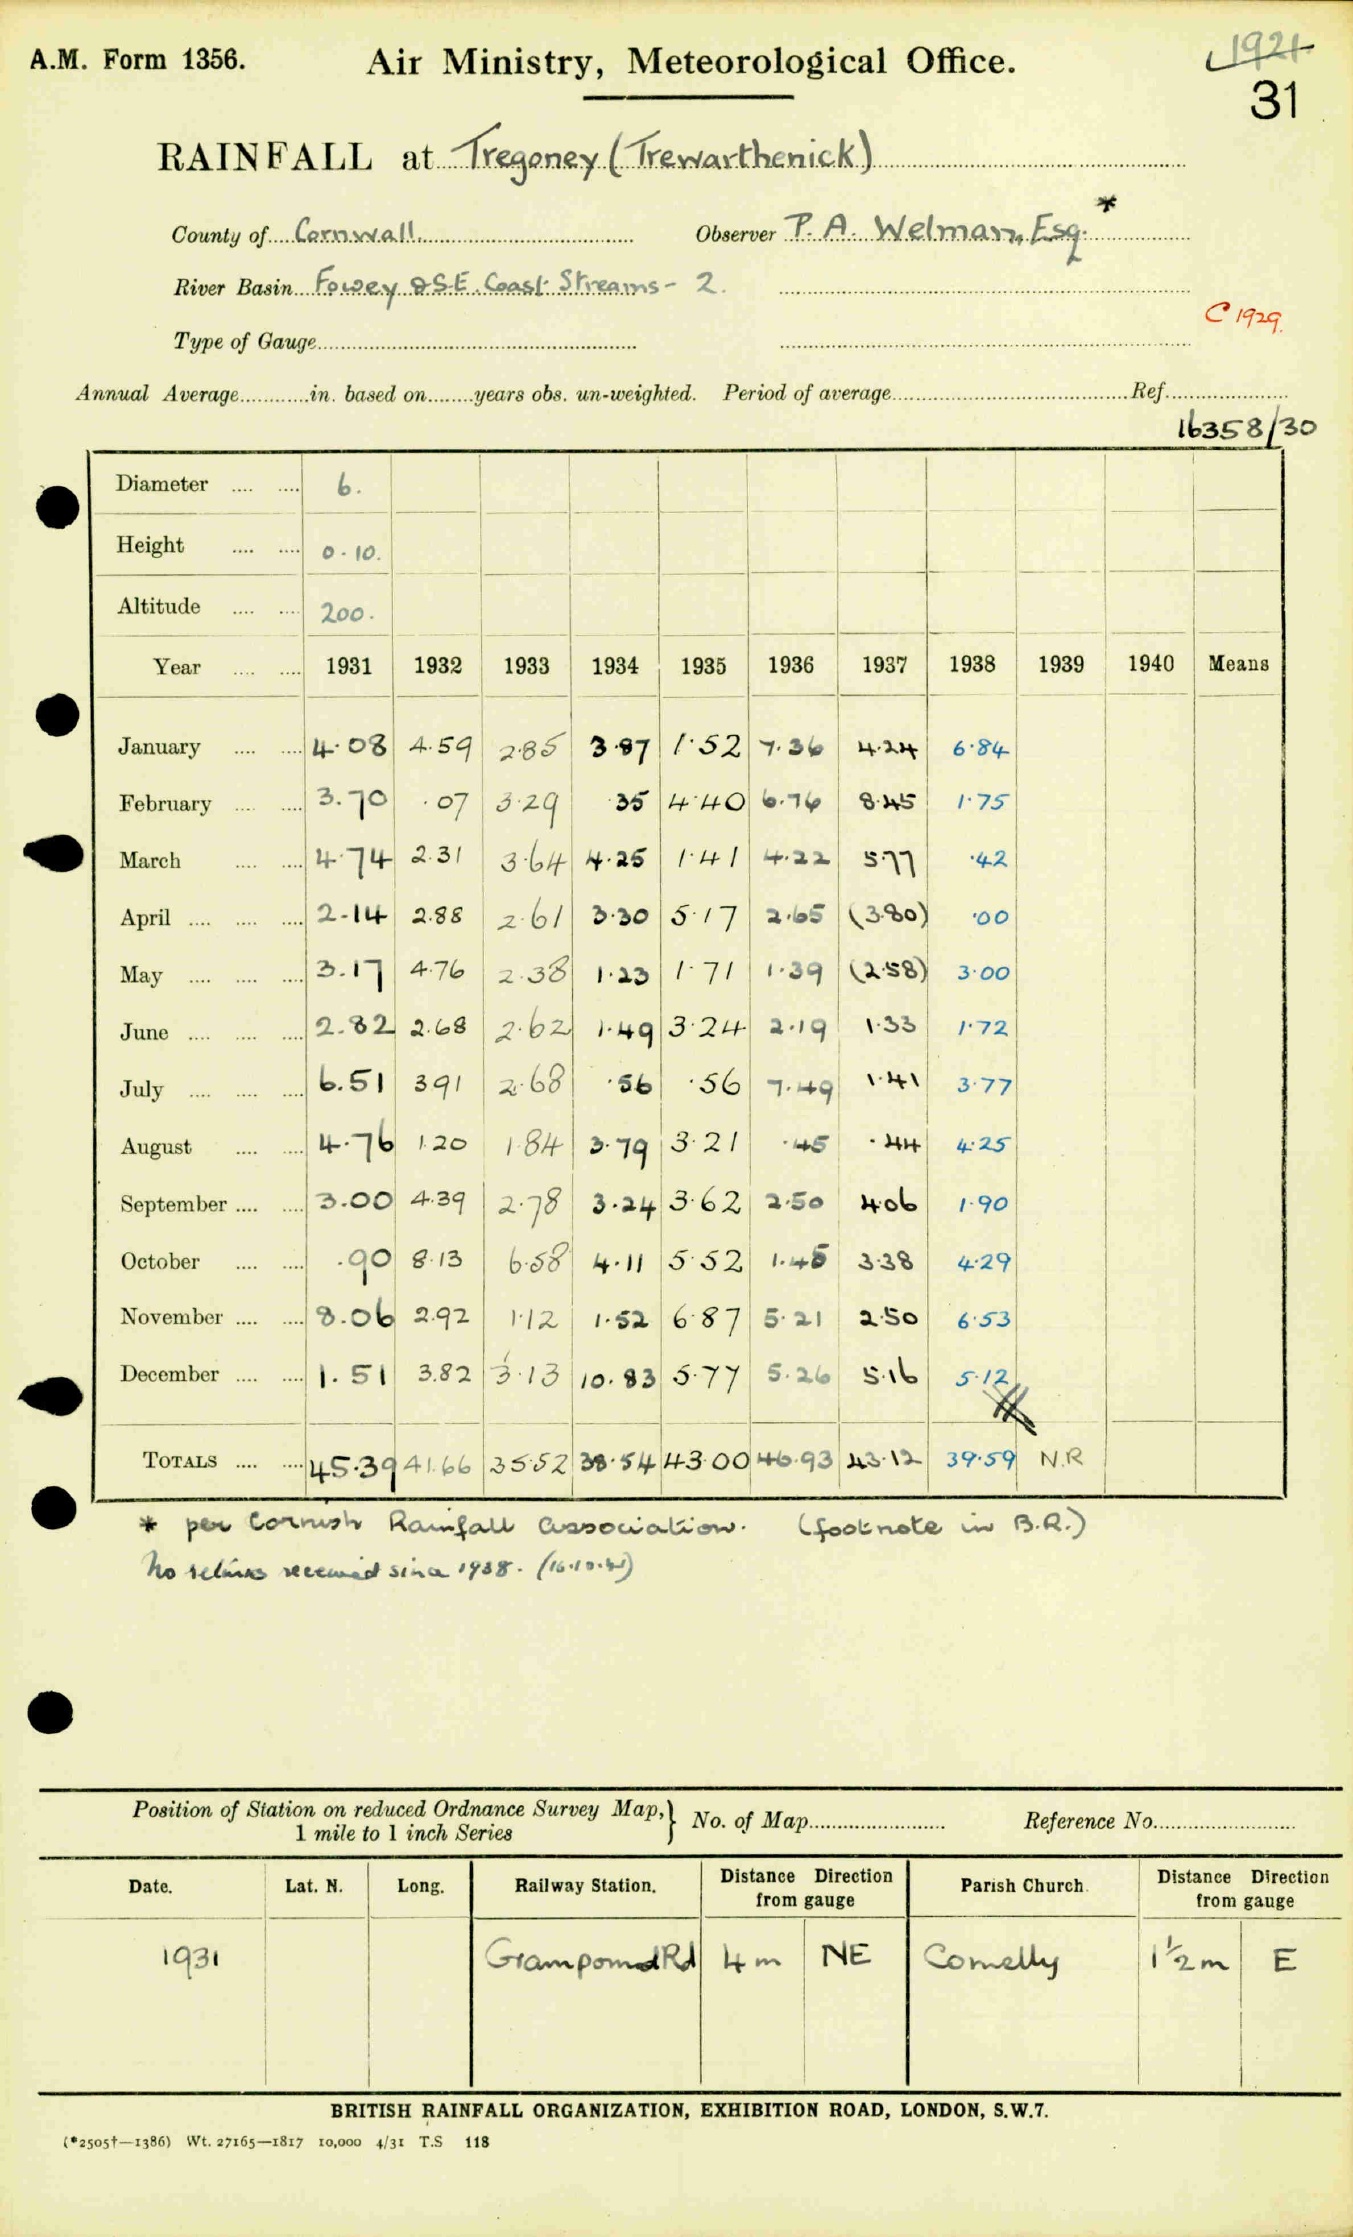 A.M. Form 1356.
Air Ministry, Meteorological Office.
1921
31
RAINFALL at Tregoney (Trewarthenick)
County of Cornwall Observer P. A. Welman, Esq. *
River Basin Fowey & S.E. Coast Streams - 2.
C 1929.
Type of Gauge
Annual Average in. based on years obs. un-weighted. Period of average Ref.
16358/30
Diameter 6.
Height 0.10.
Altitude 200.
Year 1931 1932 1933 1934 1935 1936 1937 1938 1939 1940 Means
January 4.08 4.59 2.85 3.87 1.52 7.36 4.24 6.84
February 3.70 .07 3.29 .35 4.40 6.76 8.45 1.75
March 4.74 2.31 3.64 4.25 1.41 4.22 5.77 .42
April 2.14 2.88 2.61 3.30 5.17 2.65 (3.80) .00
May 3.17 4.76 2.38 1.23 1.71 1.39 (2.58) 3.00
June 2.82 2.68 2.62 1.49 3.24 2.19 1.33 1.72
July 6.51 3.91 2.68 .56 .56 7.49 1.41 3.77
August 4.76 1.20 1.84 3.79 3.21 .45 .44 4.25
September 3.00 4.39 2.78 3.24 3.62 2.50 4.06 1.90
October .90 8.13 6.58 4.11 5.52 1.45 3.38 4.29
November 8.06 2.92 1.12 1.52 6.87 5.21 2.50 6.53
December 1.51 3.82 3.13 10.83 5.77 5.26 5.16 5.12
TOTALS 45.39 41.66 35.52 38.54 43.00 46.93 43.12 39.59 N.R
* per Cornish Rainfall Association. (footnote in B.R.)
No returns received since 1938. (16.10.41)
Position of Station on reduced Ordnance Survey Map, 1 mile to 1 inch Series } No. of Map Reference No.
Date. Lat. N. Long. Railway Station. Distance Direction from gauge Parish Church. Distance Direction from gauge
1931 Grampound Rd 4 m NE Cornelly 1½ m E
BRITISH RAINFALL ORGANIZATION, EXHIBITION ROAD, LONDON, S.W.7.
(*2505†—1386) Wt. 27165—1817 10,000 4/31 T.S 118